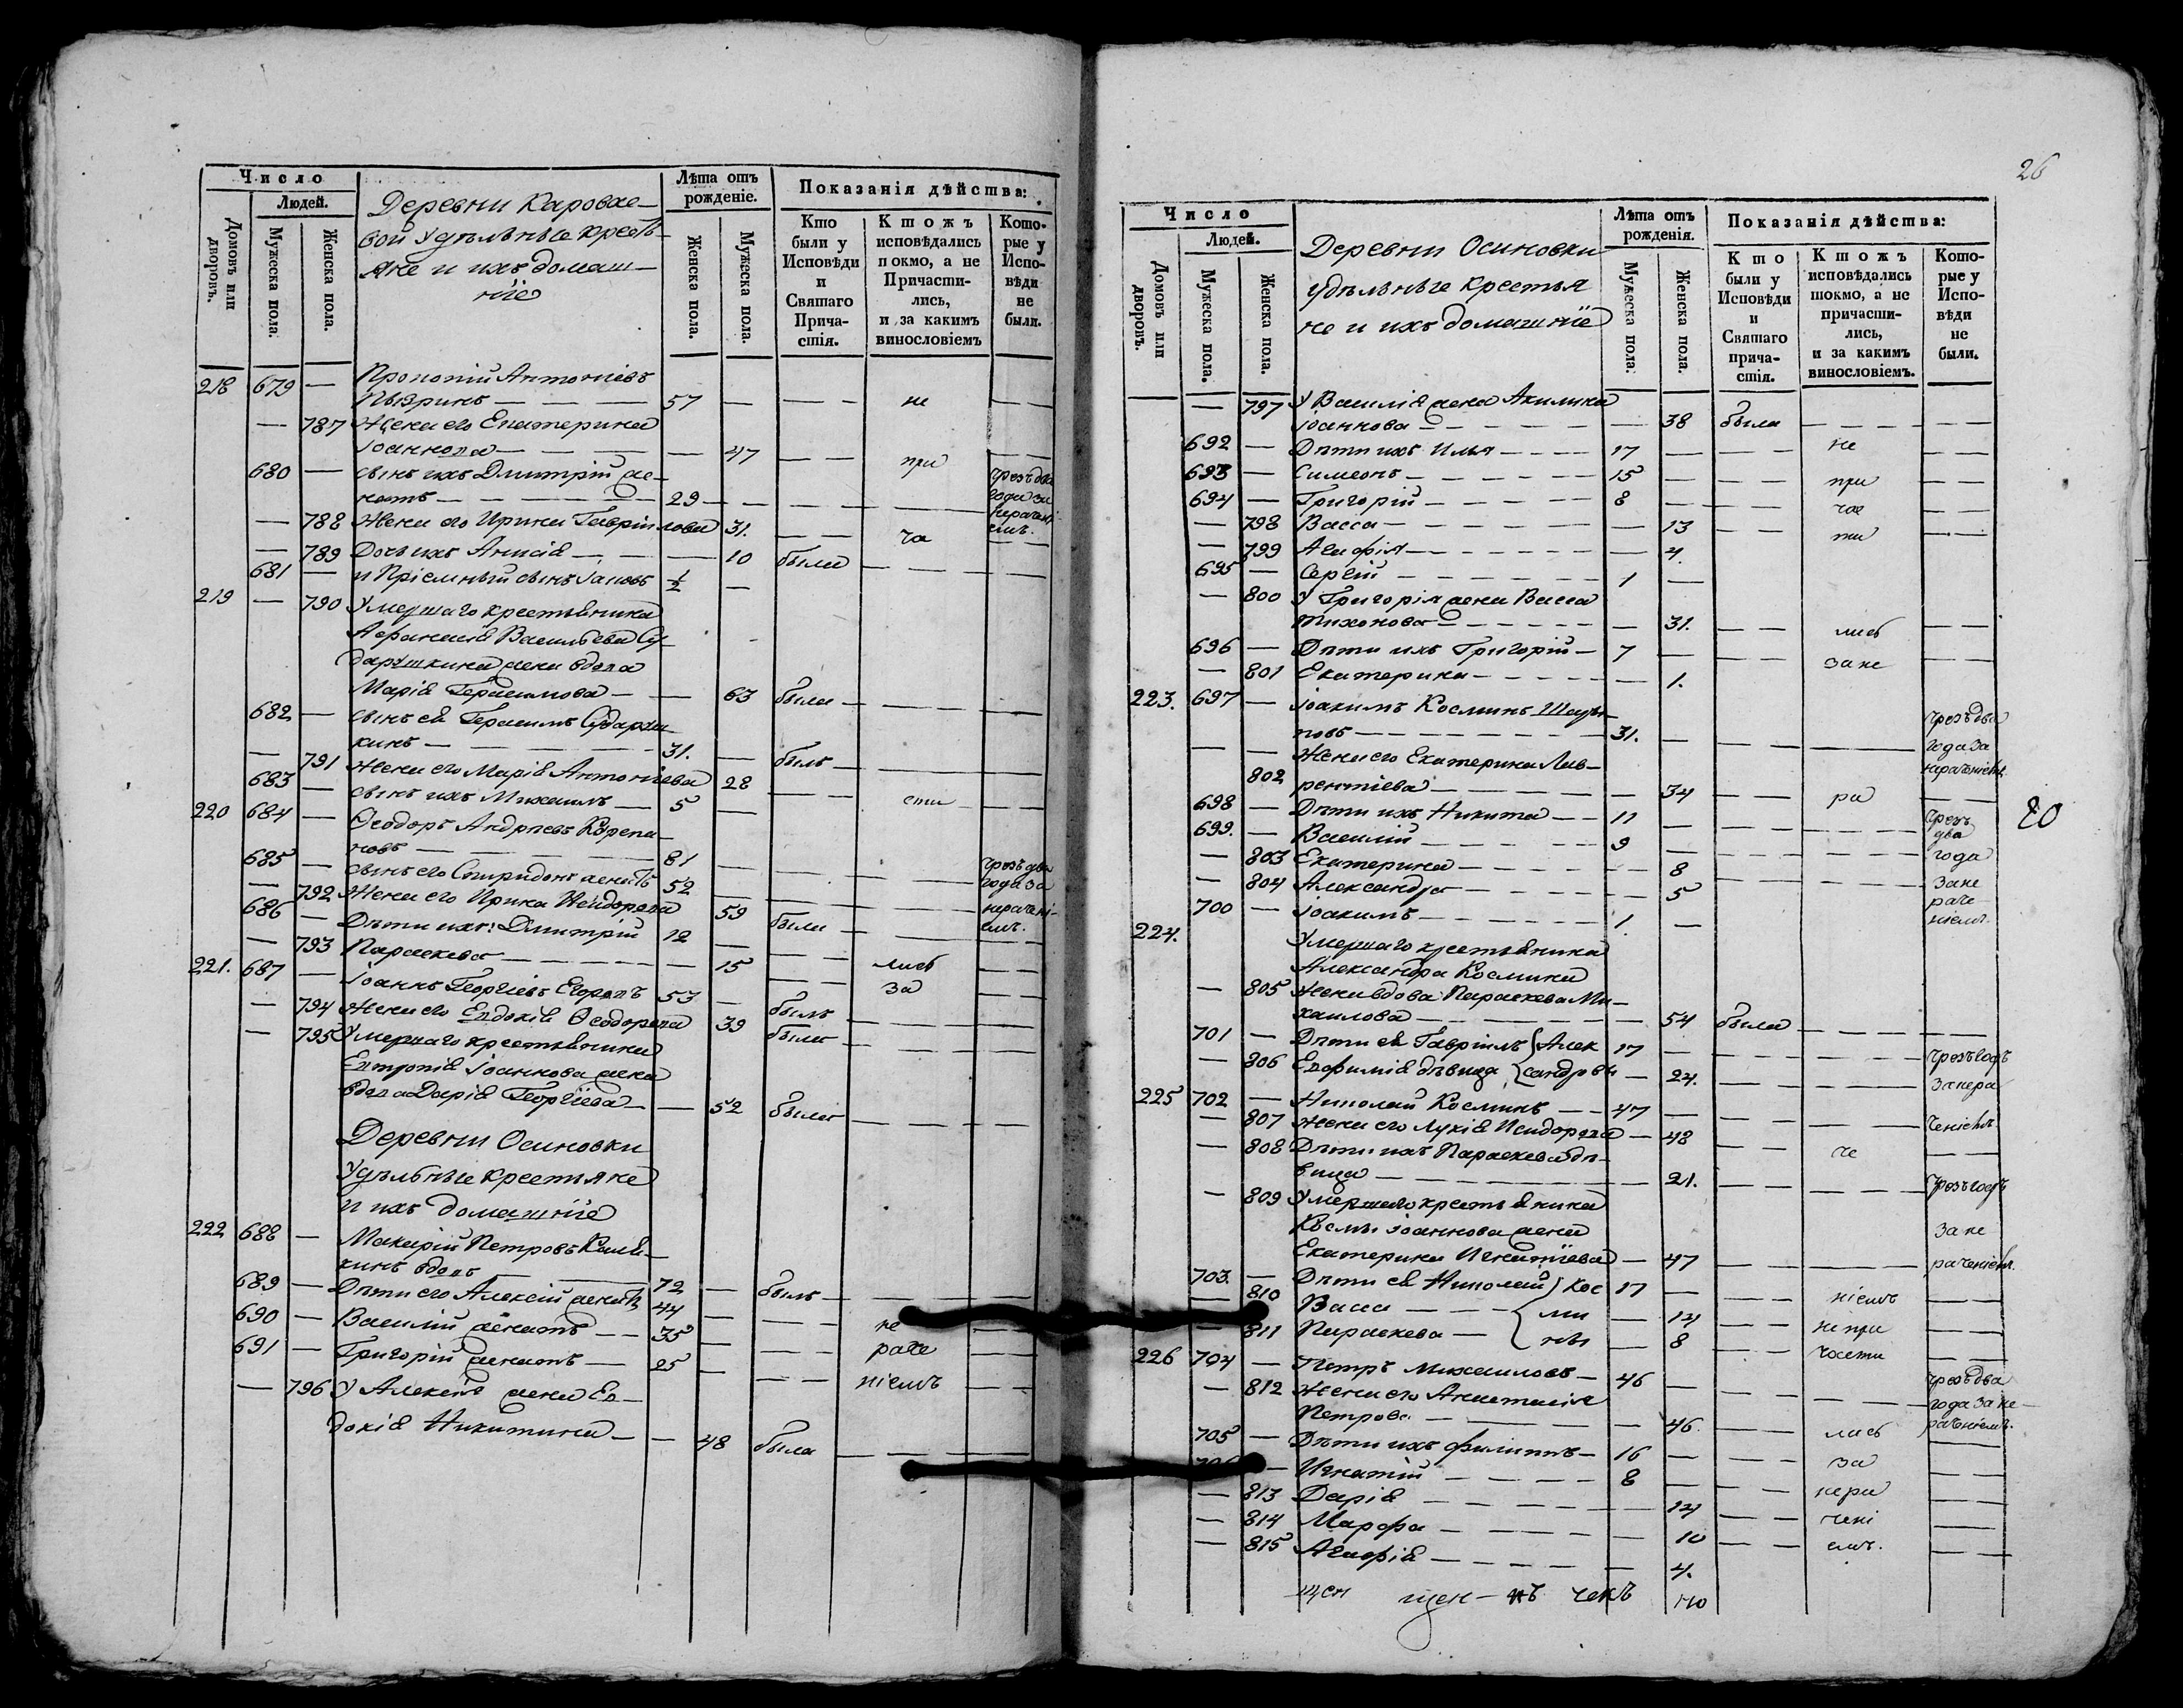 Число
Людей.
Домовъ или дворовъ.
Мужеска пола.
Женска пола.
Деревни Каровае-
вой удѣльные кресть-
яне и ихъ домаш-
ніе
Лѣта отъ рожденіе.
Женска пола.
Мужеска пола.
Показанія дѣйства:
Кто были у Исповѣди и Святаго Причастія.
Ктожъ исповѣдались токмо, а не Причастились, и за какимъ винословіемъ
Которые у Исповѣди не были.
218 679 — Антоніевъ
— — — 57 — — — не — —
— 787 Жена его Екатерина
Іоаннова — — — 47 — — при — —
680 — сынъ ихъ Дмитрій же-
натъ — — — 29 — — — чрезъ два года за нерачені-емъ.
— 788 Жена его Ирина Гаврілова 31. — — ча — —
— 789 Дочь ихъ Анисія — — 10 была — — —
681 — и Пріемный сынъ Іаковъ ½ —
219 — 790 Умершаго крестьянина
Афанасія Васильева Су-
дарушкина жена вдова
Марія Герасимова — — 63 была — — —
682 — сынъ ея Герасимъ Сударуш-
кинъ — — 31. — былъ — — —
— 791 Жена его Марія Антоніева 28 — — сти — —
683 — сынъ ихъ Михаилъ — 5 —
220 684 — Ѳеодоръ Андреевъ Корепа-
новъ — — 81 — — — — чрезъ два
685 — сынъ его Спиридонъ женатъ 52 — — — года за
— 792 Жена его Ирина Исидорова 59 была — — нерачені-
686 — Дѣти ихъ: Дмитрій 12 — — — емъ.
— 793 Параскева — — — 15 — — лись — —
221. 687 — Іоаннъ Георгіевъ Егоровъ 53 — — — за — —
— 794 Жена его Евдокія Ѳеодорова 39 былъ — — —
— 795 Умершаго крестьянина была — — —
Евтропія Іоаннова жена
вдова Дарія Георгіева — — 52 была — — —
Деревни Осиновки
Удѣльные крестьяне
и ихъ домашніе
222 688 — Макарій Петровъ
вдовъ — — 72 — былъ — — —
689 — Дѣти его Алексій женатъ 44 — — — не — —
690 — Василій женатъ — — 35 — — — раче — —
691 — Григорій женатъ — 25 — — — ніемъ — —
— 796 У Алексія жена Ев-
докія Никитина — — 48 была — — —
26
Число
Людей.
Домовъ или дворовъ.
Мужеска пола.
Женска пола.
Деревни Осиновки
удѣльные крестья
не и ихъ домашніе
Лѣта отъ рожденія.
Мужеска пола.
Женска пола.
Показанія дѣйства:
Кто были у Исповѣди и Святаго причастія.
Ктожъ исповѣдались шокмо, а не причастились, и за какимъ винословіемъ.
Которые у Исповѣди не были.
— 797 У Василія жена Акилина
Іоаннова — — — 38 была — — —
692 — Дѣти ихъ Илья — — 17 — — — не — —
693 — Симеонъ — — — 15 — — — при — —
694 — Григорій — — — 8 — — — ча — —
— 798 Васса — — — 13 — — сти — —
— 799 Агафія — — — 4.
695 — Сергій — — — 1 —
— 800 У Григорія жена Васса
Тихонова — — — 31. — — лись — —
696 — Дѣти ихъ Григорій — 7 — — — за не — —
— 801 Екатерина — — — 1.
223. 697 — Іоакимъ Косминъ
новъ — — — 31. — — — чрезъ два года за нераченіемъ
— — Жена его Екатерина Лав-
802 рентіева — — — 34 — — ра — —
698 — Дѣти ихъ Никита — — 11 — — — чрезъ
699. — Василій — — — 9 — — — два
— 803 Екатерина — — — 8 — — — года
— 804 Александра — — — 5 — — — за не
700 — Іоакимъ — — — 1. — раче-ніемъ.
224. Умершаго крестьянина
Александра Космина
— 805 жена вдова Параскева Ми-
хаилова — — — 54 была — — —
701 — Дѣти ея Гавріилъ } Алек 17 — — — чрезъ годъ
— 806 Евфимія дѣвица } сандровы — 24. — — за нера
225 702 — Николай Косминъ — — 47 — — — ченіемъ
— 807 жена его Лукія Исидорова — 48 — — че — —
— 808 Дѣти ихъ Параскева дѣ-
вица — — — 21. — — — чрезъ годъ
— 809 Умершаго крестьянина
Космы Іоаннова жена за не
Екатерина Игнатіева — 47 — — — раченіемъ.
703. — Дѣти ея Николай } Кос 17 — — — ніемъ — —
— 810 Васса — — } ми — 14 — — не при — —
— 811 Параскева — } ны — 8 — — части — —
226 704 — Петръ Михаиловъ — 46 — — — чрезъ два
— 812 Жена его Анастасія года за не-
Петрова — — — 46. — — лись раченіемъ.
705 — Дѣти ихъ Филиппъ — 16 — — — за — —
— Игнатій — — — 8 — — — нера — —
— 813 Дарія — — — 14 — — чені — —
— 814 Марфа — — — 10 — — емъ. — —
— 815 Агафія — — — 4.
20